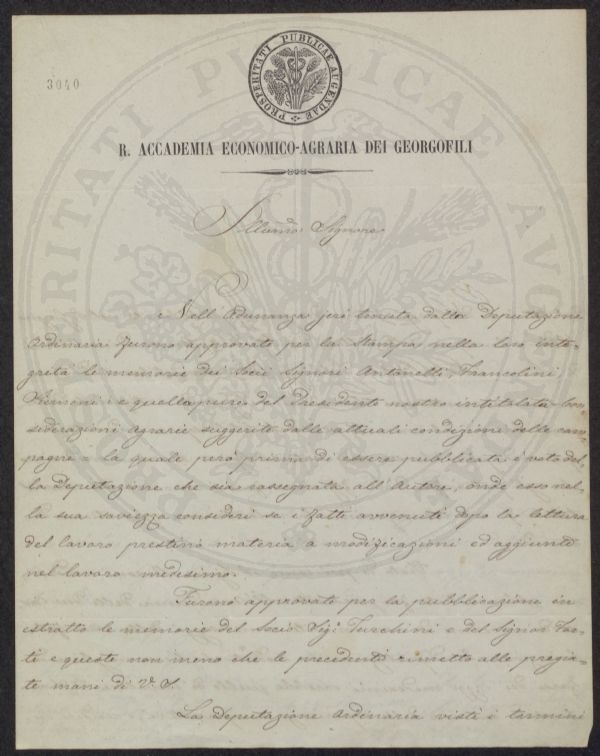 3040
PROSPERITATI PUBLICAE AUGENDAE
R. ACCADEMIA ECONOMICO-AGRARIA DEI GEORGOFILI
Illumo Signore
Nell'Adunanza jeri tenuta dalla Deputazione
Ordinaria furono approvate per la Stampa nella loro inte-
grità le memorie dei Socii Signori Antinelli, Francolini
e quella pure del Presidente nostro intitolata Con
siderazioni Agrarie suggerite dalle attuali condizioni delle cam
pagne: la quale però prima di essere pubblicata è voto del
la Deputazione che sia rassegnata all'Autore, onde esso nel
la sua saviezza consideri se i fatti avvenuti dopo la lettura
del lavoro prestino materia a modificazioni ed aggiunte
nel lavoro medesimo.
Furono approvate per la pubblicazione in
estratto le memorie del Socio Sigr. Turchini e del Signor
e queste non meno che le precedenti rimetto alle pregia-
te mani di V. S.
La Deputazione Ordinaria visti i termini